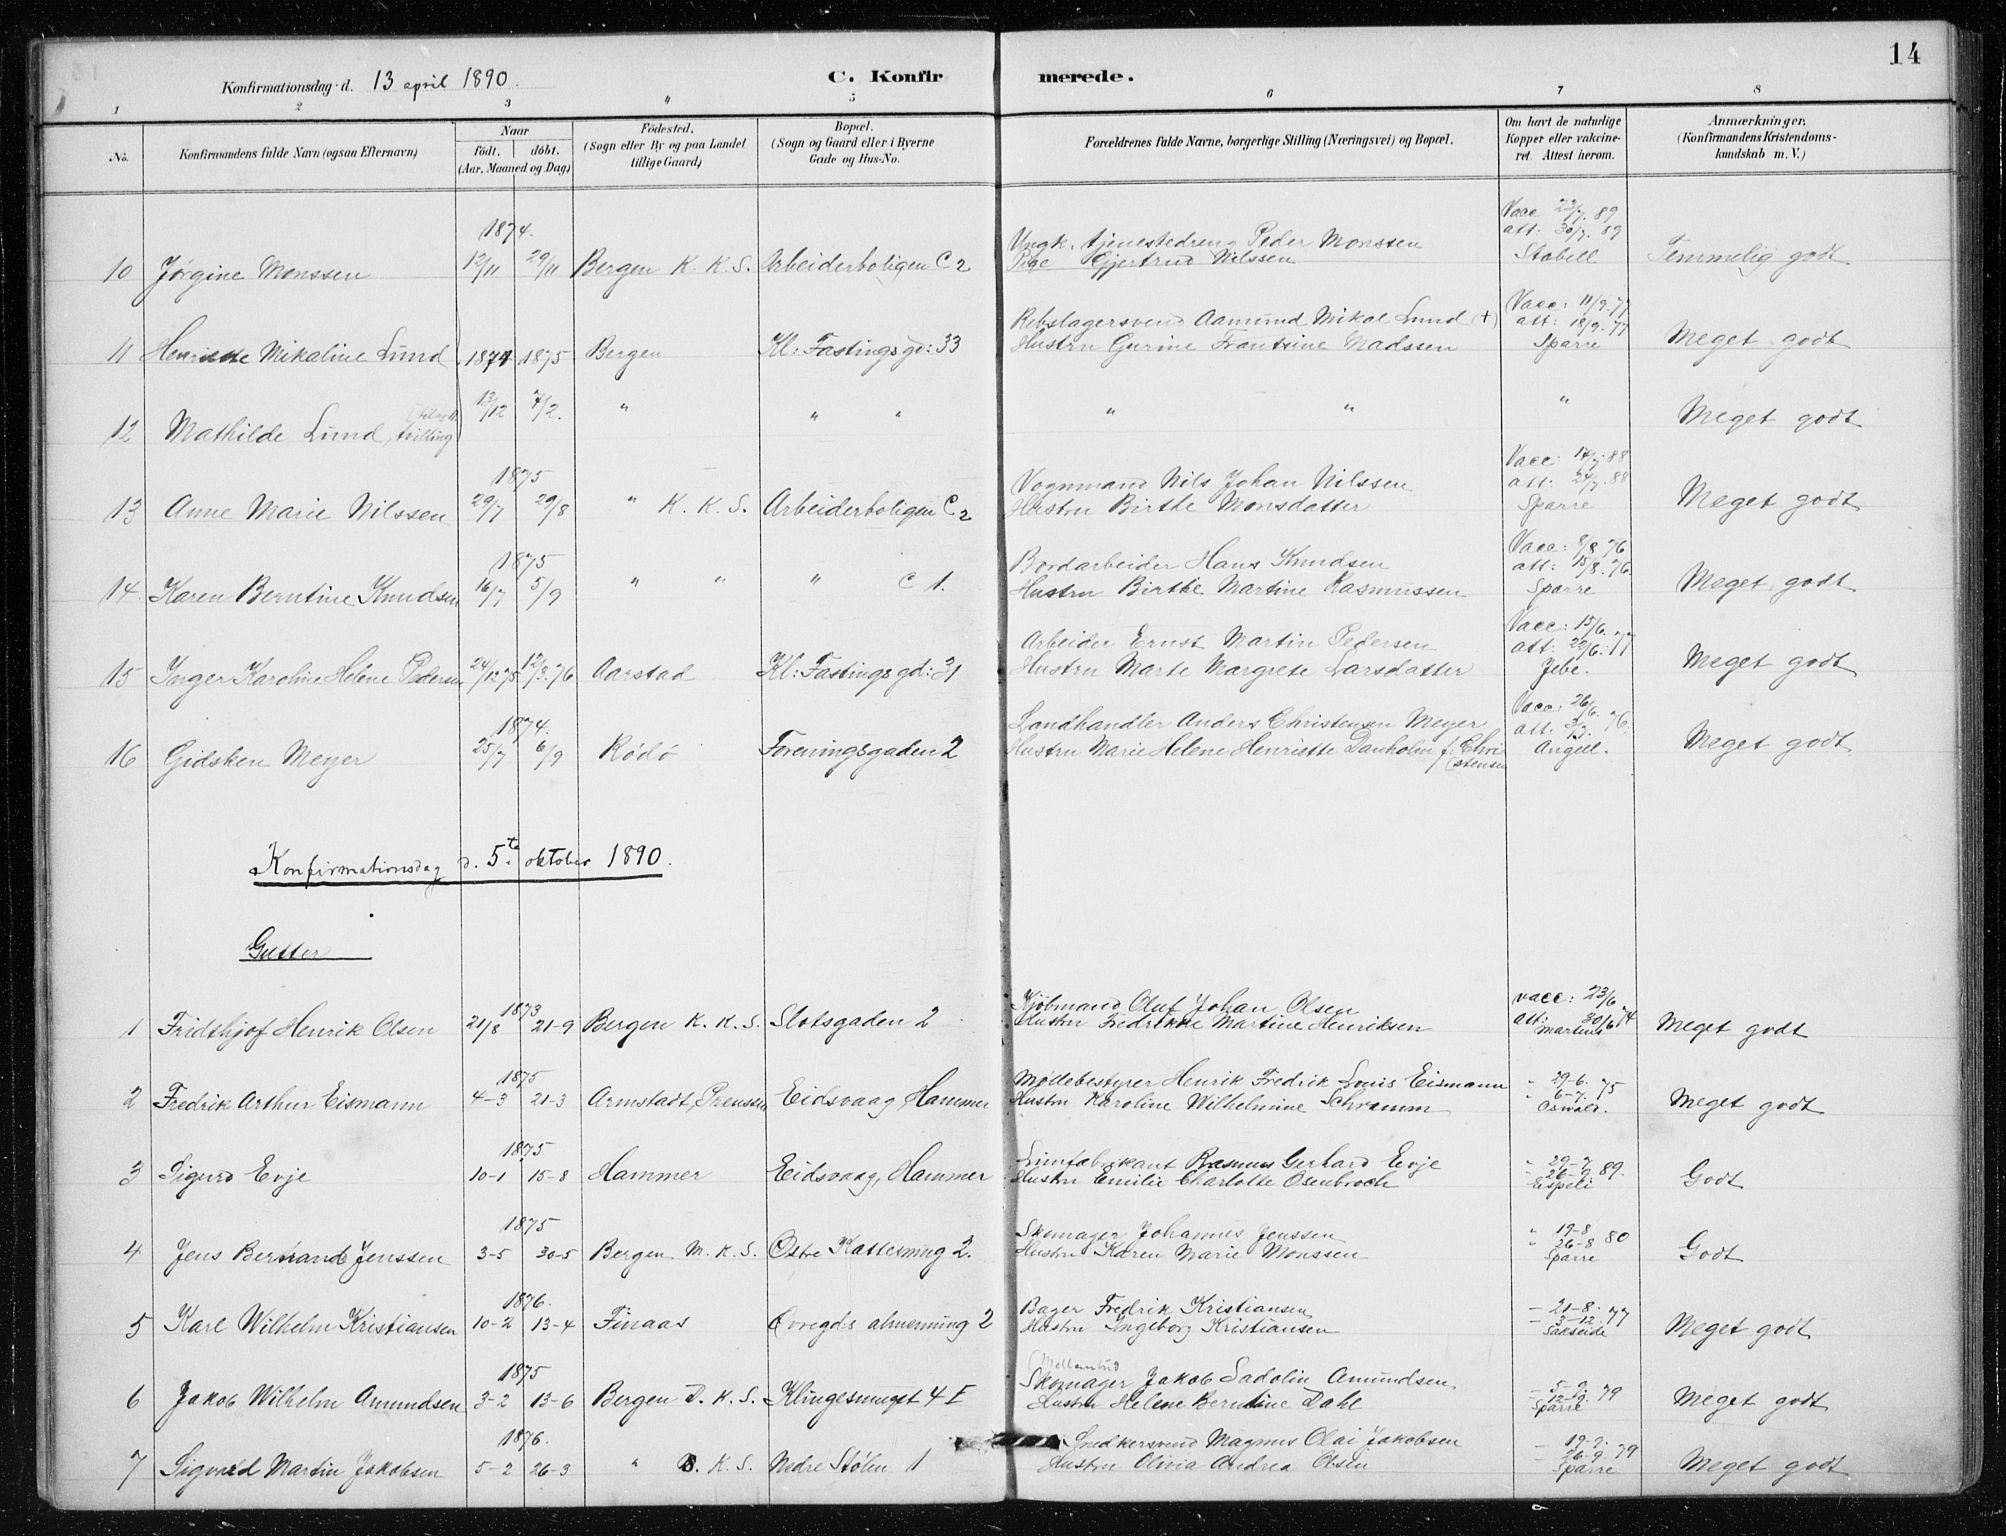 14
Konfirmationsdag d. 13 april 1890.
C. Konfirmerede.
1 2 3 " 5 6 7 8
No.
Konfirmandens fulde Navn (ogsaa Efternavn)
Naar
født. døbt.
(Aar, Maaned og Dag)
Fødested.
(Sogn eller By og paa Landet
tillige Gaard)
Bopæl.
(Sogn og Gaard eller i Byerne
Gade og Hus-No.
Forældrenes fulde Navne, borgerlige Stilling (Næringsvei) og Bopæl.
Om havt de naturlige
Kopper eller vakcine-
ret. Attest herom.
Anmærkninger,
(Konfirmandens Kristendoms-
kundskab m. V.)
1874.
10 Jørgine Monssen 12/11 29/11 Bergen K. K. S. Arbeiderboligen C 2
Ungk. tjenestedreng Peder Monssen
Pige Gjertrud Nilssen
Vacc 23/7. 89
att: 30/7. 89
Stabell
Temmelig godt.
11 Henriette Mikaline Lund 1874 1875 Bergen Kl: Fastingsgd: 33
Rebslagersvend Aamund Mikal Lund (+)
Hustru Gurine Frantsine Madssen
Vacc: 11/9. 77
att: 18/9. 77
Sparre
Meget godt
12 Mathilde Lund, tvilling 13/12 7/2. " " " " " "
Meget godt
1875
13 Anne Marie Nilssen 29/7 29/8 " K. K. S. Arbeiderboligen C 2
Vognmand Nils Johan Nilssen
Hustru Birthe Monsdatter
Vacc: 17/7. 88
att: 24/7. 88
Sparre
Meget godt
1875
14 Karen Berntine Knudsen 16/7 5/9 " " " C 1.
Bordarbeider Hans Knudsen
Hustru Birthe Martine Rasmussen
Vacc: 8/8. 76
att: 15/8. 76.
Sparre
Meget godt
15 Inger Karoline Helene Pedersen 24/12 75 12/3. 76 Aarstad Kl: Fastingsgd: 31
Arbeider Ernst Martin Pedersen
Hustru Marte Margrete Larsdatter
Vacc: 15/6. 77
att: 22/6. 77
Jebe.
Meget godt
1874.
16 Gidsken Meyer 25/7 6/9 Rødø Foreningsgaden 2
Landhandler Anders Christensen Meyer
Hustru Marie Helene Henriette Danholm f. Chri
stensen
Vacc: 26/6. 76.
att:
Angell.
Meget godt
Konfirmationsdag d. 5te oktober 1890.
Gutter
1873
1 Fridthjof Henrik Olsen 21/8 21-9 Bergen K. K. S. Slotsgaden 2
Kjøbmand Oluf Johan Olsen
Hustru Fredrikke Martine Henriksen
vacc: 23/6
att: 30/6 74
Martens
Meget godt
1875
2 Fredrik Arthur Eismann 4-3 21-3 Armstadt, Preussen Eidsvaag, Hammer
Møllebestyrer Henrik Fredrik Louis Eismann
Hustru Karoline Wilhelmine Schramm
" 29-6. 75
" 6-7.
Oswald.
Meget godt
1875
3 Sigurd Evje 10-1 15-8 Hammer Eidsvaag, Hammer
Limfabrikant Rasmus Gerhard Evje
Hustru Emilie Charlotte Osenbroch
" 29-7 89.
" 26-9
Eispeli
Godt
1875
4 Jens Bernhard Jenssen 3-5 30-5 Bergen M. K. S. Østre Kattesmug 2.
Skomager Johannes Jenssen
Hustru Karen Marie Monssen
" 19-8 80
" 26-8
Sparre
Godt
1876.
5 Karl Wilhelm Kristiansen 10-2 13-4 Finaas Øvregds almenning 2
Bager Fredrik Kristiansen
Hustru Ingeborg Kristiansen
- 21-8. 77
- 3-12.
Sakseide
Meget godt
1875
6 Jakob Wilhelm Amundsen 3-2 13-6 Bergen D. K. S. Klingesmuget 4 E
Skomager Jakob Sadolin Amundsen
Hustru Helene Berntine Dahl
- 5-9. 79
- 12-9.
Sparre
Meget godt
1876.
7 Sigvald Martin Jakobsen 5-2 26-3 " K. S. Nedre Stølen 1
Snedkersvend Magnus Olai Jakobsen
Hustru Olivia Andrea Olsen
- 19-9. 79
- 26-9
Sparre
Meget godt